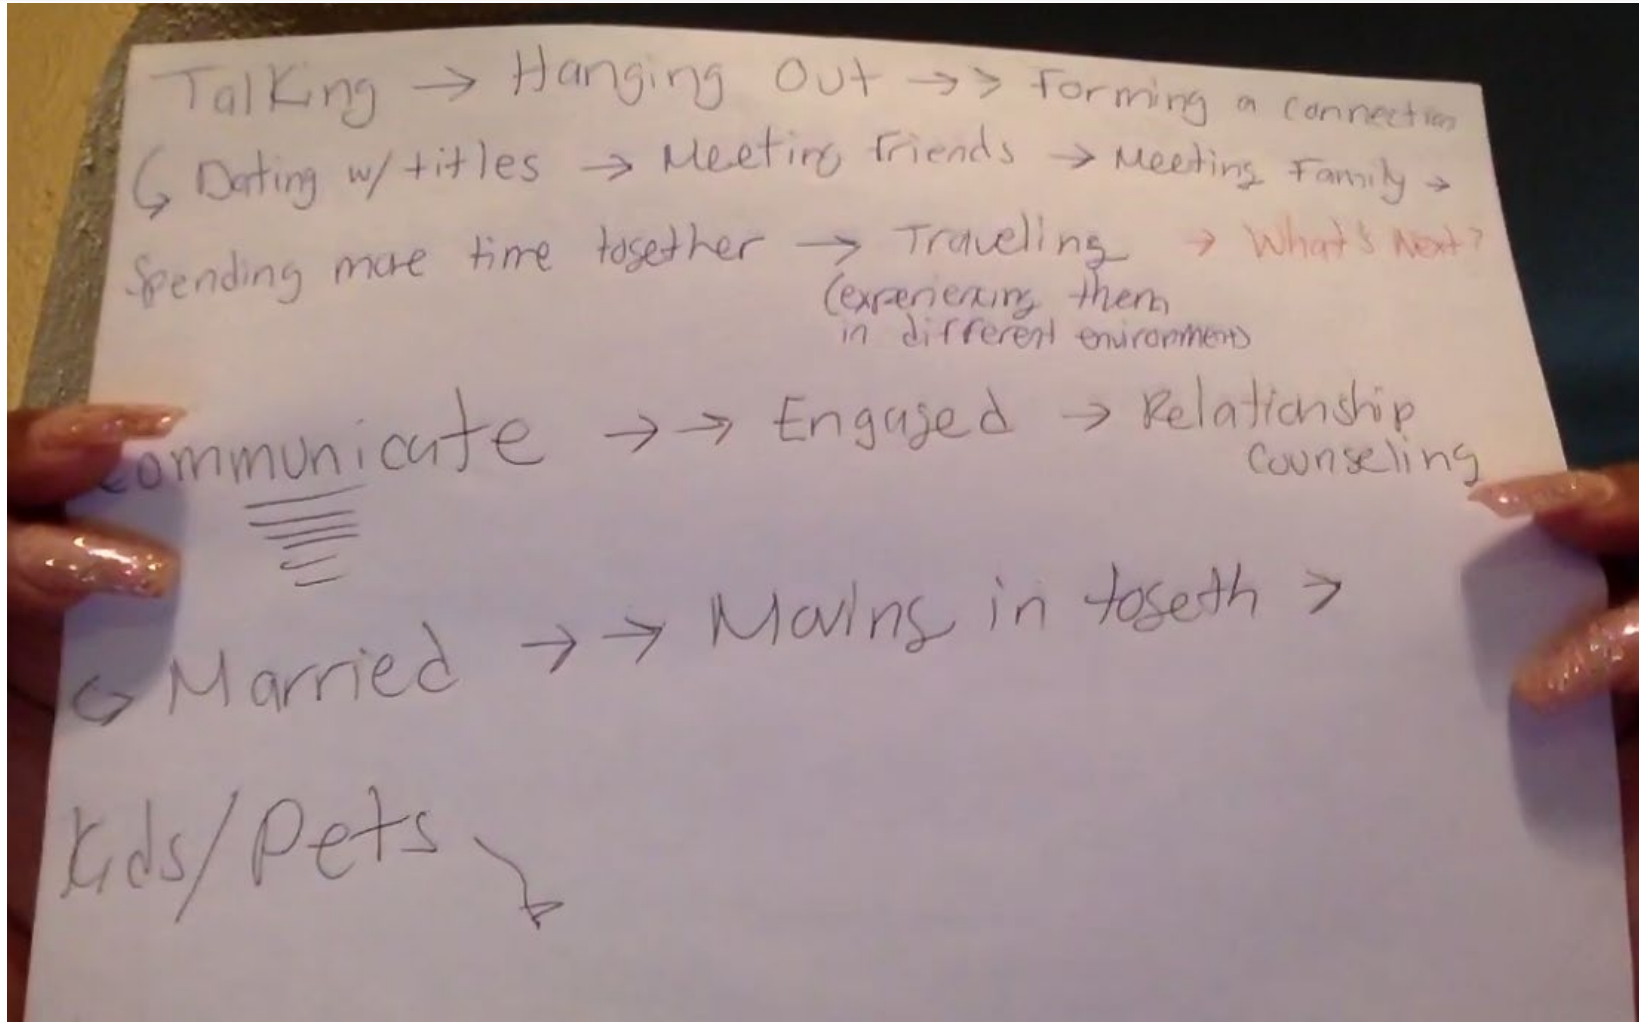 Talking → Hanging Out →> Forming a connection
↳ Dating w/ titles → Meeting friends → Meeting Family →
Spending more time together → Traveling → What's Next?
(experiencing them
in different environments
Communicate →→ Engaged → Relationship
Counseling
↳ Married →→ Moving in togeth >
Kids/Pets ↘